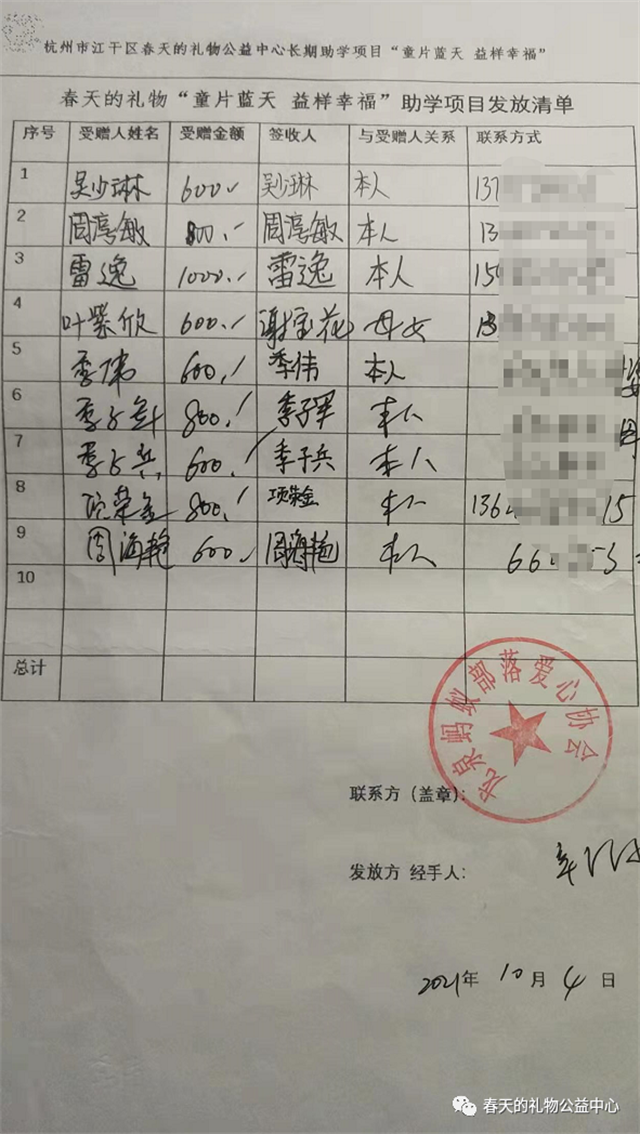 杭州市江干区春天的礼物公益中心长期助学项目“童片蓝天 益样幸福”
春天的礼物“童片蓝天 益样幸福”助学项目发放清单
序号 受赠人姓名 受赠金额 签收人 与受赠人关系 联系方式
1 吴少琳 600.- 吴少琳 本人 137
2 周淳敏 800.- 周淳敏 本人 13
3 雷逸 1000.- 雷逸 本人 159
4 叶紫欣 600.- 谢宝花 母女
5 季伟 600.- 季伟 本人
6 季子军 800.- 季子军 本人
7 季子兵 600.- 季子兵 本人
8 项荣金 800.- 项荣金 本人 136 15
9 周海艳 600.- 周海艳 本人 66
10
总计
龙泉蚂蚁部落爱心协会
联系方（盖章）：
发放方 经手人：
2021年 10月 4日
春天的礼物公益中心